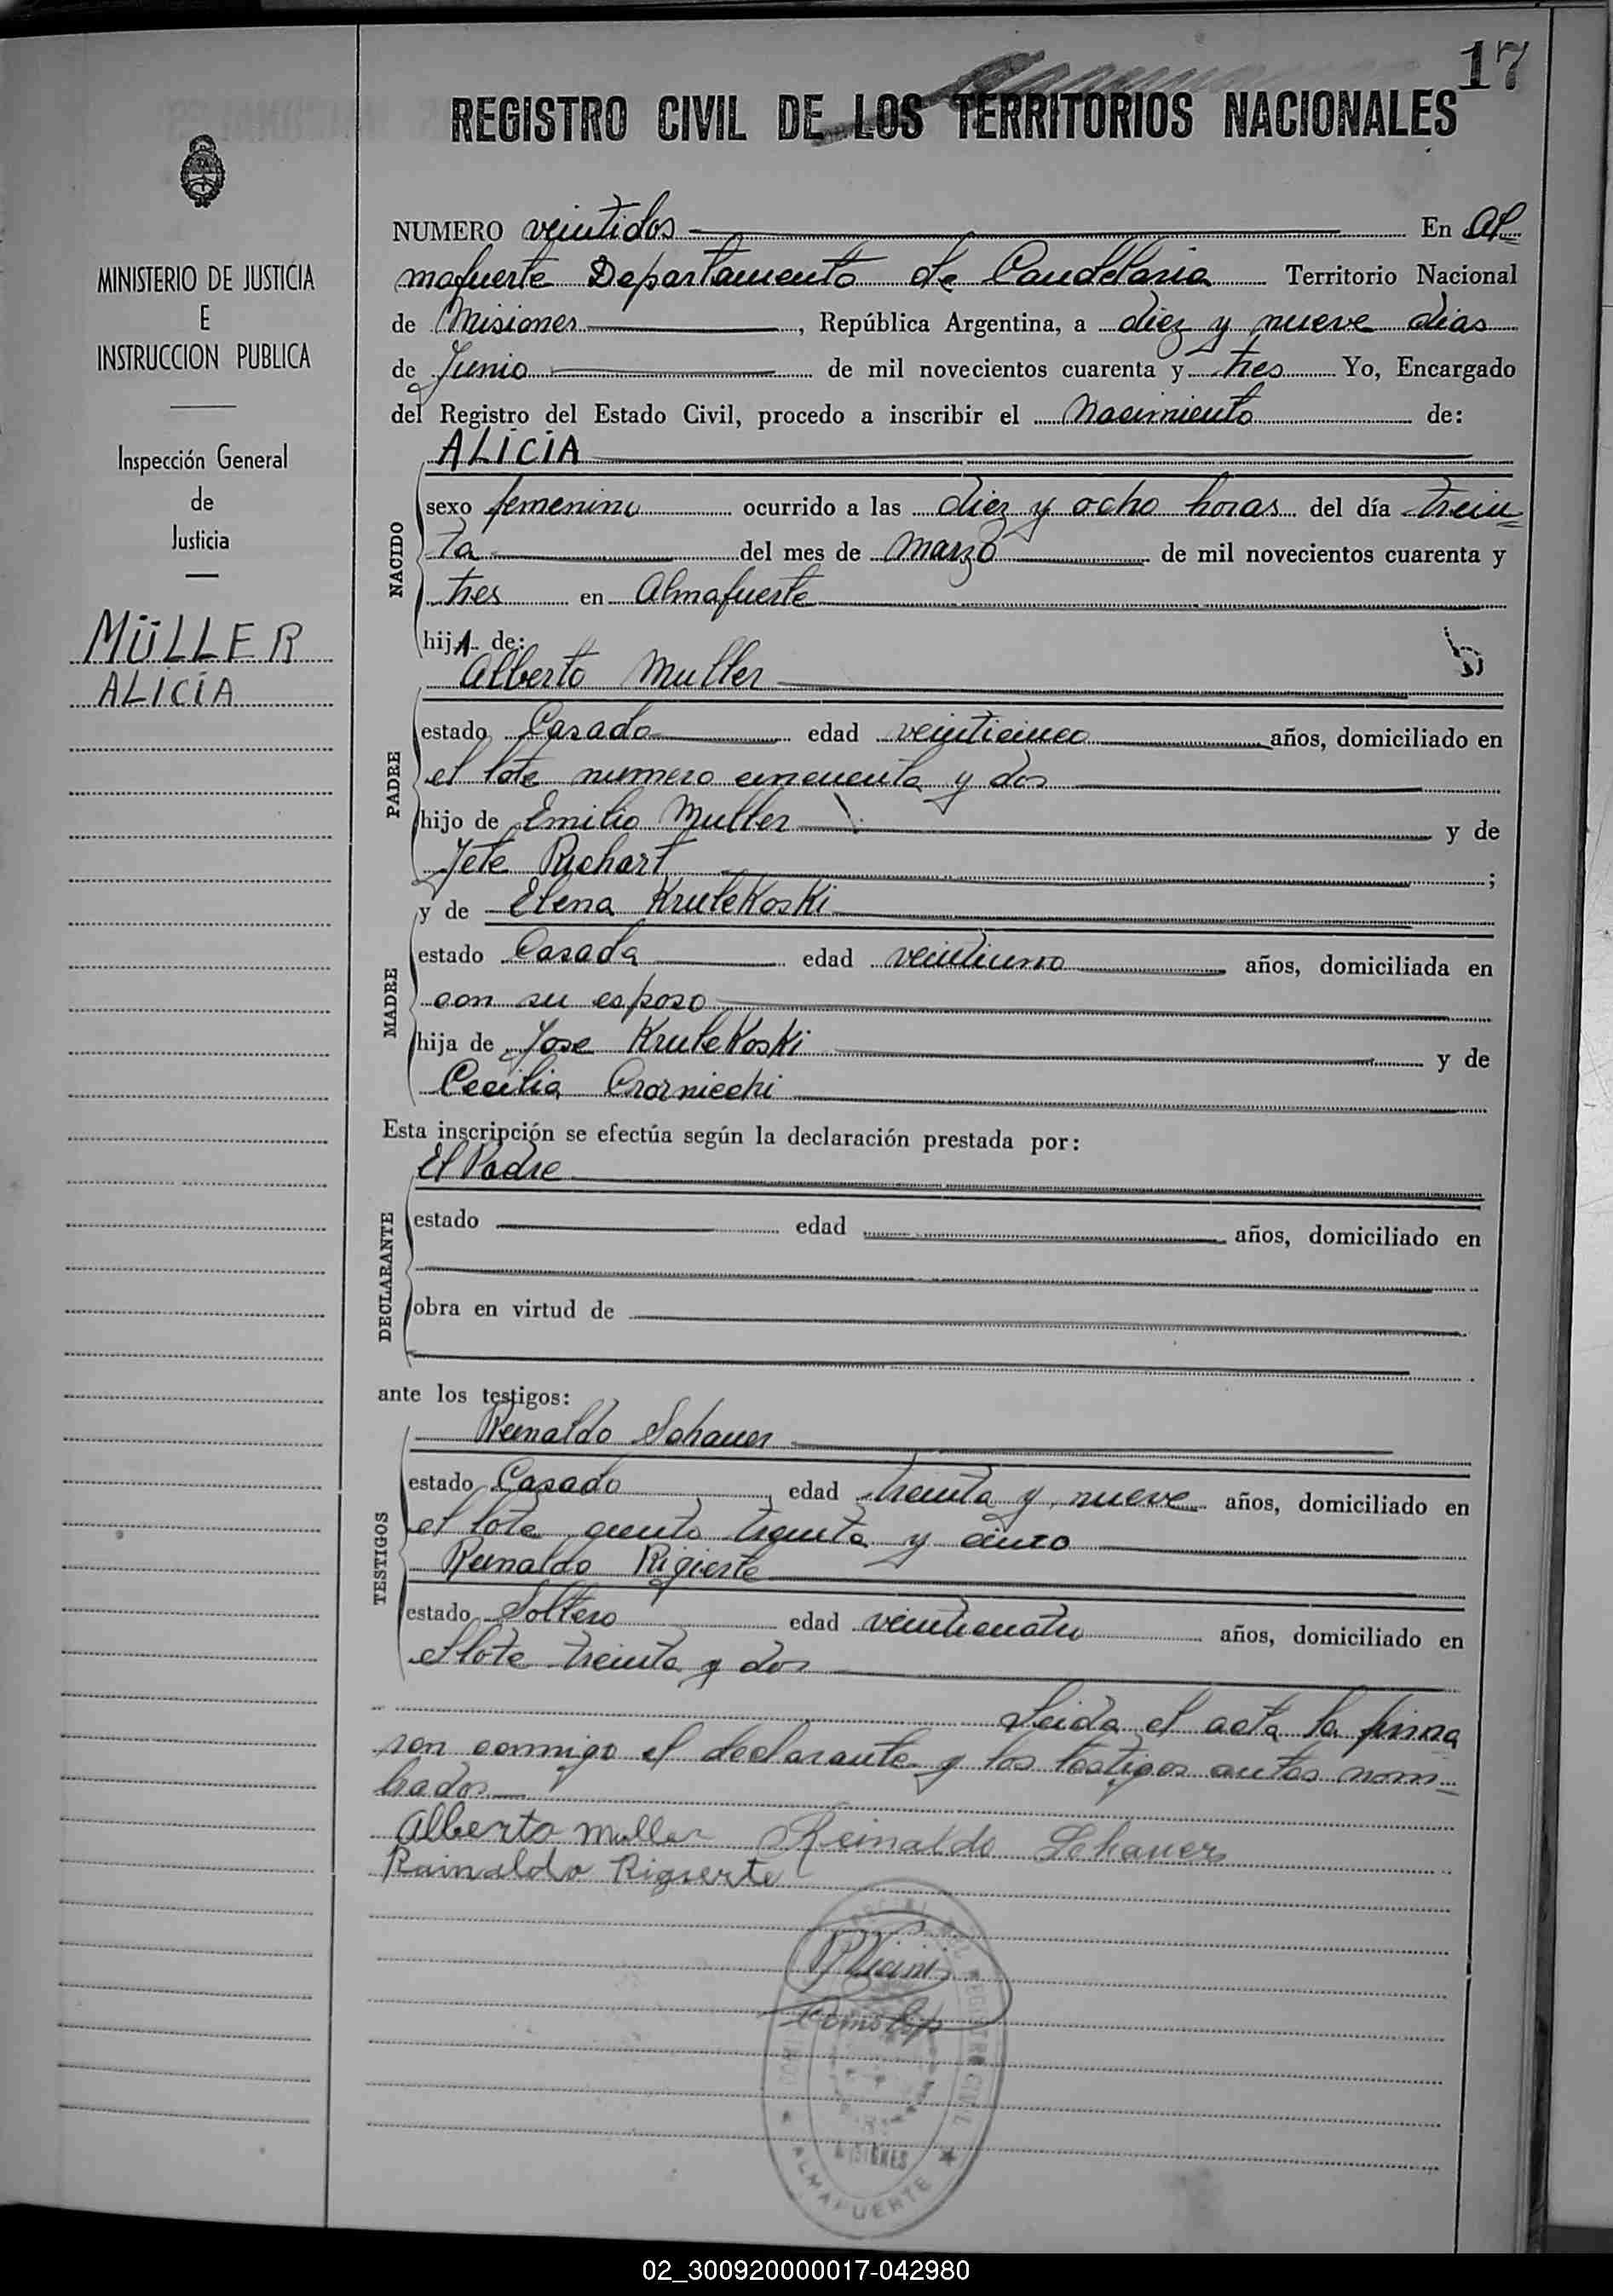 17
REGISTRO CIVIL DE LOS TERRITORIOS NACIONALES
MINISTERIO DE JUSTICIA
E
INSTRUCCION PUBLICA
Inspección General
de
Justicia
MÜLLER
ALICIA
NUMERO veintidos En Al
mafuerte Departamento de Candelaria Territorio Nacional
de Misiones, República Argentina, a diez y nueve dias
de Junio de mil novecientos cuarenta y tres Yo, Encargado
del Registro del Estado Civil, procedo a inscribir el Nacimiento de:
NACIDO
ALICIA
sexo femenino ocurrido a las diez y ocho horas del día trein=
ta del mes de Marzo de mil novecientos cuarenta y
tres en Almafuerte
hijA de:
PADRE
Alberto Muller
estado Casado edad veinticinco años, domiciliado en
el lote numero cincuenta y dos
hijo de Emilio Muller y de
Jete Richart ;
MADRE
y de Elena Krulekoski
estado Casada edad veintiuno años, domiciliada en
con su esposo
hija de Jose Krulekoski y de
Cecilia Crornicchi
Esta inscripción se efectúa según la declaración prestada por:
DECLARANTE
El Padre
estado edad años, domiciliado en
obra en virtud de
ante los testigos:
TESTIGOS
Reinaldo Schauer
estado Casado edad treinta y nueve años, domiciliado en
el lote ciento treinta y cinco
Reinaldo Rigierte
estado Soltero edad veinticuatro años, domiciliado en
el lote treinta y dos
Leida el acta la firma
ron conmigo el declarante y los testigos antes nom=
brados
Alberto Muller Reinaldo Schauer
Rainaldo Rigierte
REGISTRO CIVIL
MISIONES
ALMAFUERTE
02_300920000017-042980